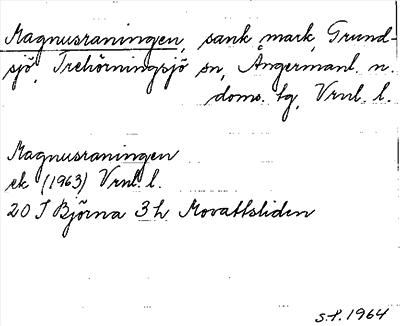 Magnusraningen, sank mark, Grund-
sjö, Trehörningsjö sn, Ångermanl. n.
doms. tg, Vrnl. l.
Magnusraningen
ek (1963) Vrnl. l.
20 I Björna 3 h Movattsliden
S.F. 1964